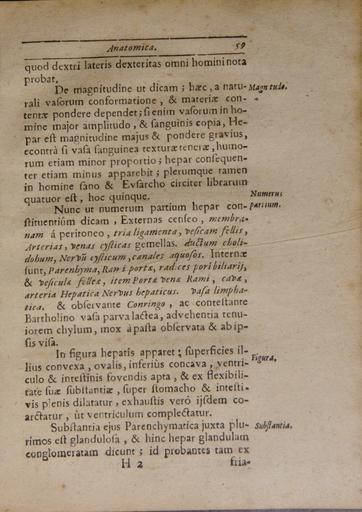 Anatomica. 59
quod dextri lateris dexteritas omni homini nota
probat.
De magnitudine ut dicam ; hæc , a natu- Magn tudo.
rali vasorum conformatione , & materiæ con-
tentæ pondere dependet ; si enim vasorum in ho-
mine major amplitudo , & sanguinis copia, He-
par est magnitudine majus & pondere gravius,
econtrà si vasa sanguinea texturæ teneræ , humo-
rum etiam minor proportio ; hepar consequen-
ter etiam minus apparebit ; plerumque tamen
in homine sano & Eusarcho circiter librarum
quatuor est , hoc quinque. Numerus
Nunc ut numerum partium hepar con- partium.
stituentium dicam , Externas censeo , membra-
nam á peritoneo , tria ligamenta, vesicam fellis,
Arterias , venas cysticas gemellas. ductum choli-
dohum, Nervū cysticum, canales aquosos. Internæ
sunt, Parenhyma, Rami portæ, radices pori biliarij,
& vesiculæ felleæ , item Portæ venæ Rami , cavæ ,
arteria Hepatica Nervus hepaticus. vasa limpha-
tica. & observante Conringo , ac contestante
Bartholino vasa parva lactea, advehentia tenu-
iorem chylum, mox à pasta observata & ab ip-
sis visa.
In figura hepatis apparet ; superficies il- Figura.
lius convexa , ovalis, inferiùs concava , ventri-
culo & intestinis fovendis apta , & ex flexibili-
tate suæ substantiæ , super stomacho & intesti-
vis plenis dilatatur , exhaustis verò ijsdem co-
arctatur , ùt ventriculum complectatur.
Substantia ejus Parenchymatica juxta plu- Substantia.
rimos est glandulosa , & hinc hepar glandulam
conglomeratam dicunt ; id probantes tam ex
H 2 fria-